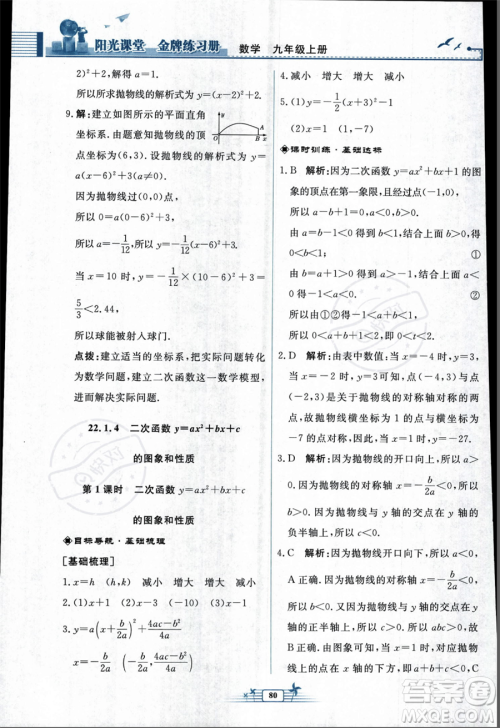 阳光课堂 金牌练习册 数学 九年级上册
2)²+1,
所以所求抛物线的解析式为y=
1/2(x-2)²+1.
9.解:建立如图所示的平面直角
坐标系,由于抛物线的顶点
坐标为(6,3).设抛物线的解析式为y=
a(x-6)²+3(a≠0).
因为抛物线过(0,0)点,
所以0=a(0-6)²+3.
所以a=-1/12,所以y=-1/12(x-6)²+3.
当x=10时,y=-1/12×(10-6)²+3=
5/3<2.44,
所以球能被射入球门.
点拨:建立适当的坐标系,把实际问题转化
为数学问题,建立二次函数这一数学模型,
进而解决实际问题.
22.1.4 二次函数y=ax²+bx+c
的图象和性质
第1课时 二次函数y=ax²+bx+c
的图象和性质
目标导航·基础梳理
[基础梳理]
1.x=h (h,k) 减小 增大 增大 减小
2.(1)x+1 (2)x-1
3.y=a(x+b/2a)²+(4ac-b²)/4a
x=-b/2a (-b/2a,(4ac-b²)/4a)
4.减小 增大 增大 减小
5.(1)y=-1/2(x-1)²-1
(2)x=1 (1,-1)
课时训练·基础达标
1.B 解析:因为二次函数y=ax²+bx+1的
图象的顶点在第一象限,且经过点(-1,0),
所以a-b+1=0,
由a=b-1<0得b<1. ①
由b=a+1>0得a>-1. ②
所以由①②得0<b<1.
所以0<t<2.
2.D 解析:由表中数值:当x=-4时,y=3;当
x=-1时,y=3.由抛物线的对称性质知:
点(-4,3)和点(-1,3)关于抛物线的对称轴
对称,
所以抛物线的对称轴为x=(-4-1)/2=
-2.5,所以抛物线与x轴的另一个交点的横
坐标为-3.故选D.
3.D 解析:因为抛物线的开口向上,所以a>
0;因为抛物线的对称轴为x=-b/2a<0,所以
b>0;因为抛物线与y轴的交点在y轴的
负半轴上,所以c<0.
4.C 解析:因为抛物线开口向下,所以a<0,
A正确.因为抛物线的对称轴x=-b/2a<0,
a<0,所以b<0,B正确.由图象可知,当x=
0时,对应的点在x轴的下方,所以c<0,C